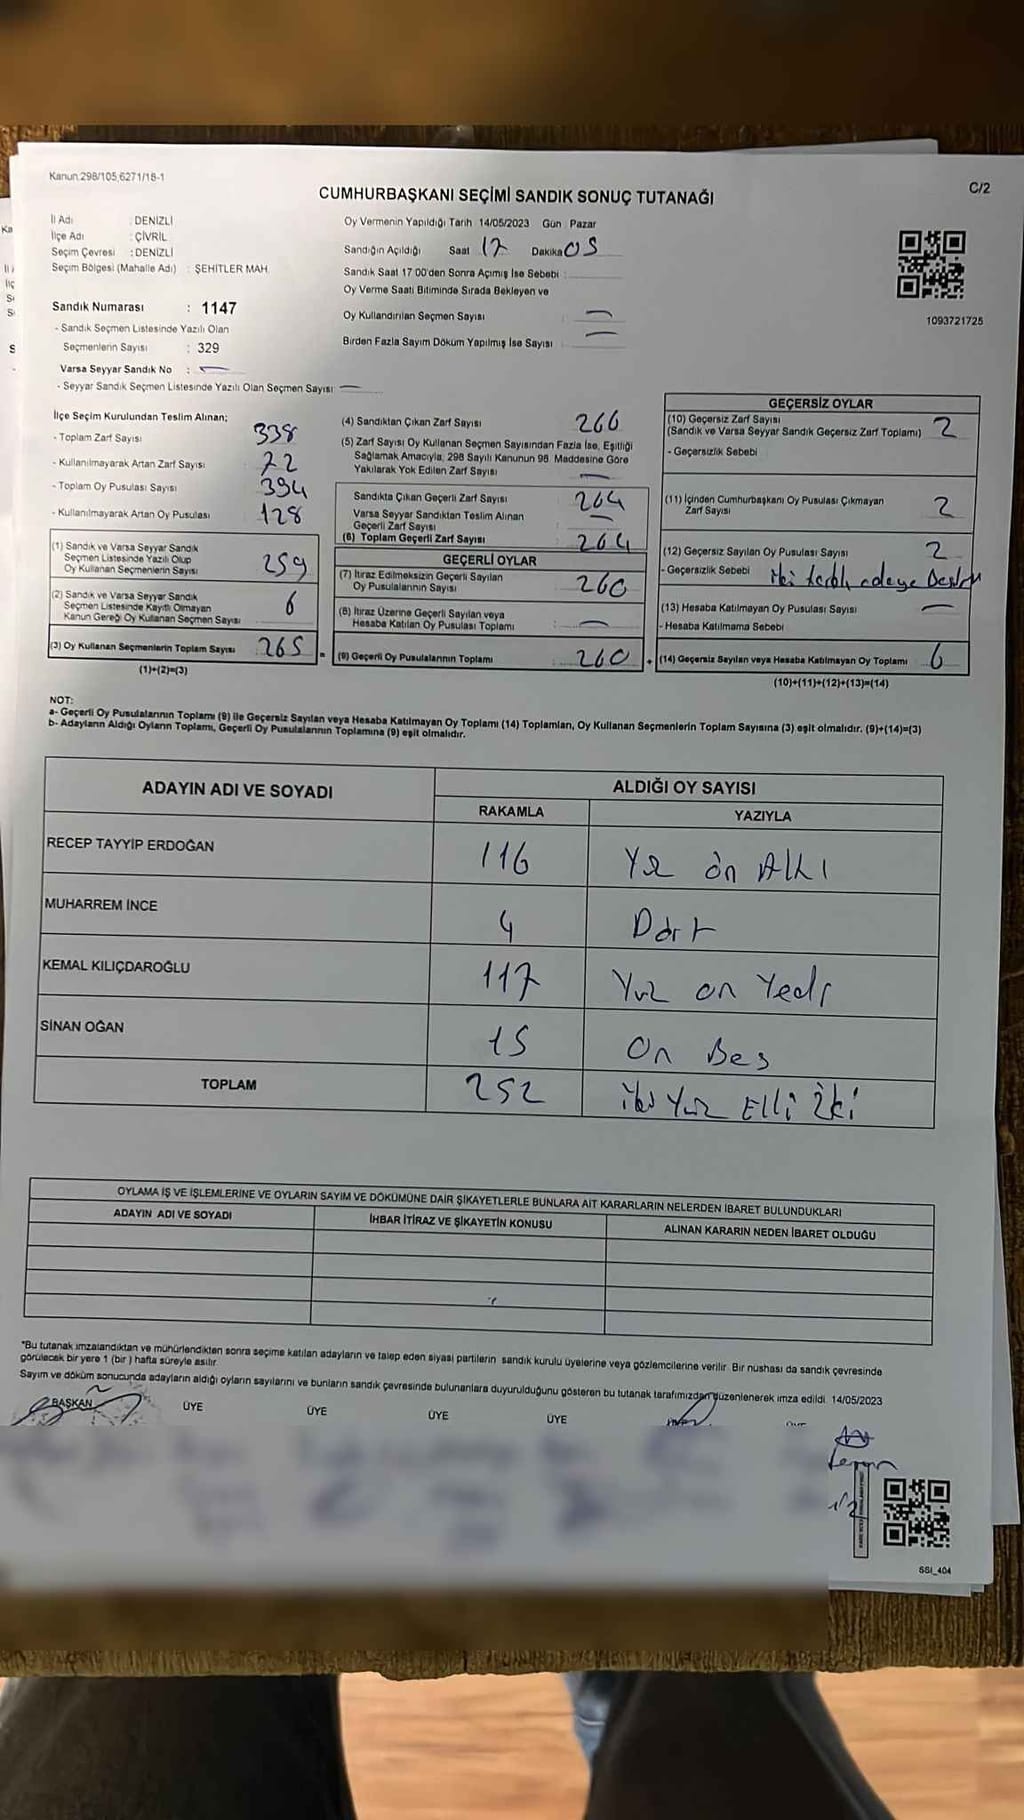 Kanun.298/105,6271/18-1
C/2
CUMHURBAŞKANI SEÇİMİ SANDIK SONUÇ TUTANAĞI
İl Adı : DENİZLİ
İlçe Adı : ÇİVRİL
Seçim Çevresi : DENİZLİ
Seçim Bölgesi (Mahalle Adı) : ŞEHİTLER MAH.
Sandık Numarası : 1147
- Sandık Seçmen Listesinde Yazılı Olan
Seçmenlerin Sayısı : 329
Varsa Seyyar Sandık No : —
- Seyyar Sandık Seçmen Listesinde Yazılı Olan Seçmen Sayısı: —
Oy Vermenin Yapıldığı Tarih 14/05/2023 Gün Pazar
Sandığın Açıldığı Saat 17 Dakika 05
Sandık Saat 17:00'den Sonra Açımış İse Sebebi :
Oy Verme Saati Bitiminde Sırada Bekleyen ve
Oy Kullandırılan Seçmen Sayısı : —
Birden Fazla Sayım Döküm Yapılmış İse Sayısı : —
1093721725
İlçe Seçim Kurulundan Teslim Alınan;
- Toplam Zarf Sayısı 338
- Kullanılmayarak Artan Zarf Sayısı 72
- Toplam Oy Pusulası Sayısı 394
- Kullanılmayarak Artan Oy Pusulası 128
(1) Sandık ve Varsa Seyyar Sandık
Seçmen Listesinde Yazılı Olup
Oy Kullanan Seçmenlerin Sayısı 259
(2) Sandık ve Varsa Seyyar Sandık
Seçmen Listesinde Kayıtlı Olmayan
Kanun Gereği Oy Kullanan Seçmen Sayısı 6
(3) Oy Kullanan Seçmenlerin Toplam Sayısı 265 =
(1)+(2)=(3)
(4) Sandıktan Çıkan Zarf Sayısı 266
(5) Zarf Sayısı Oy Kullanan Seçmen Sayısından Fazla İse, Eşitliği
Sağlamak Amacıyla, 298 Sayılı Kanunun 98. Maddesine Göre
Yakılarak Yok Edilen Zarf Sayısı —
Sandıkta Çıkan Geçerli Zarf Sayısı 264
Varsa Seyyar Sandıktan Teslim Alınan
Geçerli Zarf Sayısı —
(6) Toplam Geçerli Zarf Sayısı 264
GEÇERLİ OYLAR
(7) İtiraz Edilmeksizin Geçerli Sayılan
Oy Pusulasının Sayısı 260
(8) İtiraz Üzerine Geçerli Sayılan veya
Hesaba Katılan Oy Pusulası Toplamı : —
(9) Geçerli Oy Pusulalarının Toplamı 260 +
GEÇERSİZ OYLAR
(10) Geçersiz Zarf Sayısı
(Sandık ve Varsa Seyyar Sandık Geçersiz Zarf Toplamı) 2
- Geçersizlik Sebebi
(11) İçinden Cumhurbaşkanı Oy Pusulası Çıkmayan
Zarf Sayısı 2
(12) Geçersiz Sayılan Oy Pusulası Sayısı 2
- Geçersizlik Sebebi iki
(13) Hesaba Katılmayan Oy Pusulası Sayısı —
- Hesaba Katılmama Sebebi
(14) Geçersiz Sayılan veya Hesaba Katılmayan Oy Toplamı 6
(10)+(11)+(12)+(13)=(14)
NOT:
a- Geçerli Oy Pusulalarının Toplamı (9) ile Geçersiz Sayılan veya Hesaba Katılmayan Oy Toplamı (14) Toplamları, Oy Kullanan Seçmenlerin Toplam Sayısına (3) eşit olmalıdır. (9)+(14)=(3)
b- Adayların Aldığı Oyların Toplamı, Geçerli Oy Pusulalarının Toplamına (9) eşit olmalıdır.
ADAYIN ADI VE SOYADI
ALDIĞI OY SAYISI
RAKAMLA YAZIYLA
RECEP TAYYİP ERDOĞAN 116 Yüz ön Altı
MUHARREM İNCE 4 Dört
KEMAL KILIÇDAROĞLU 117 Yuz on Yedi
SİNAN OĞAN 15 On Beş
TOPLAM 252 iki Yuz Elli İki
OYLAMA İŞ VE İŞLEMLERİNE VE OYLARIN SAYIM VE DÖKÜMÜNE DAİR ŞİKAYETLERLE BUNLARA AİT KARARLARIN NELERDEN İBARET BULUNDUKLARI
ADAYIN ADI VE SOYADI İHBAR İTİRAZ VE ŞİKAYETİN KONUSU ALINAN KARARIN NEDEN İBARET OLDUĞU
*Bu tutanak imzalandıktan ve mühürlendikten sonra seçime katılan adayların ve talep eden siyasi partilerin sandık kurulu üyelerine veya gözlemcilerine verilir. Bir nüshası da sandık çevresinde
görülecek bir yere 1 (bir ) hafta süreyle asılır.
Sayım ve döküm sonucunda adayların aldığı oyların sayılarını ve bunların sandık çevresinde bulunanlara duyurulduğunu gösteren bu tutanak tarafımızdan düzenlenerek imza edildi. 14/05/2023
BAŞKAN ÜYE ÜYE ÜYE ÜYE
SSI_404